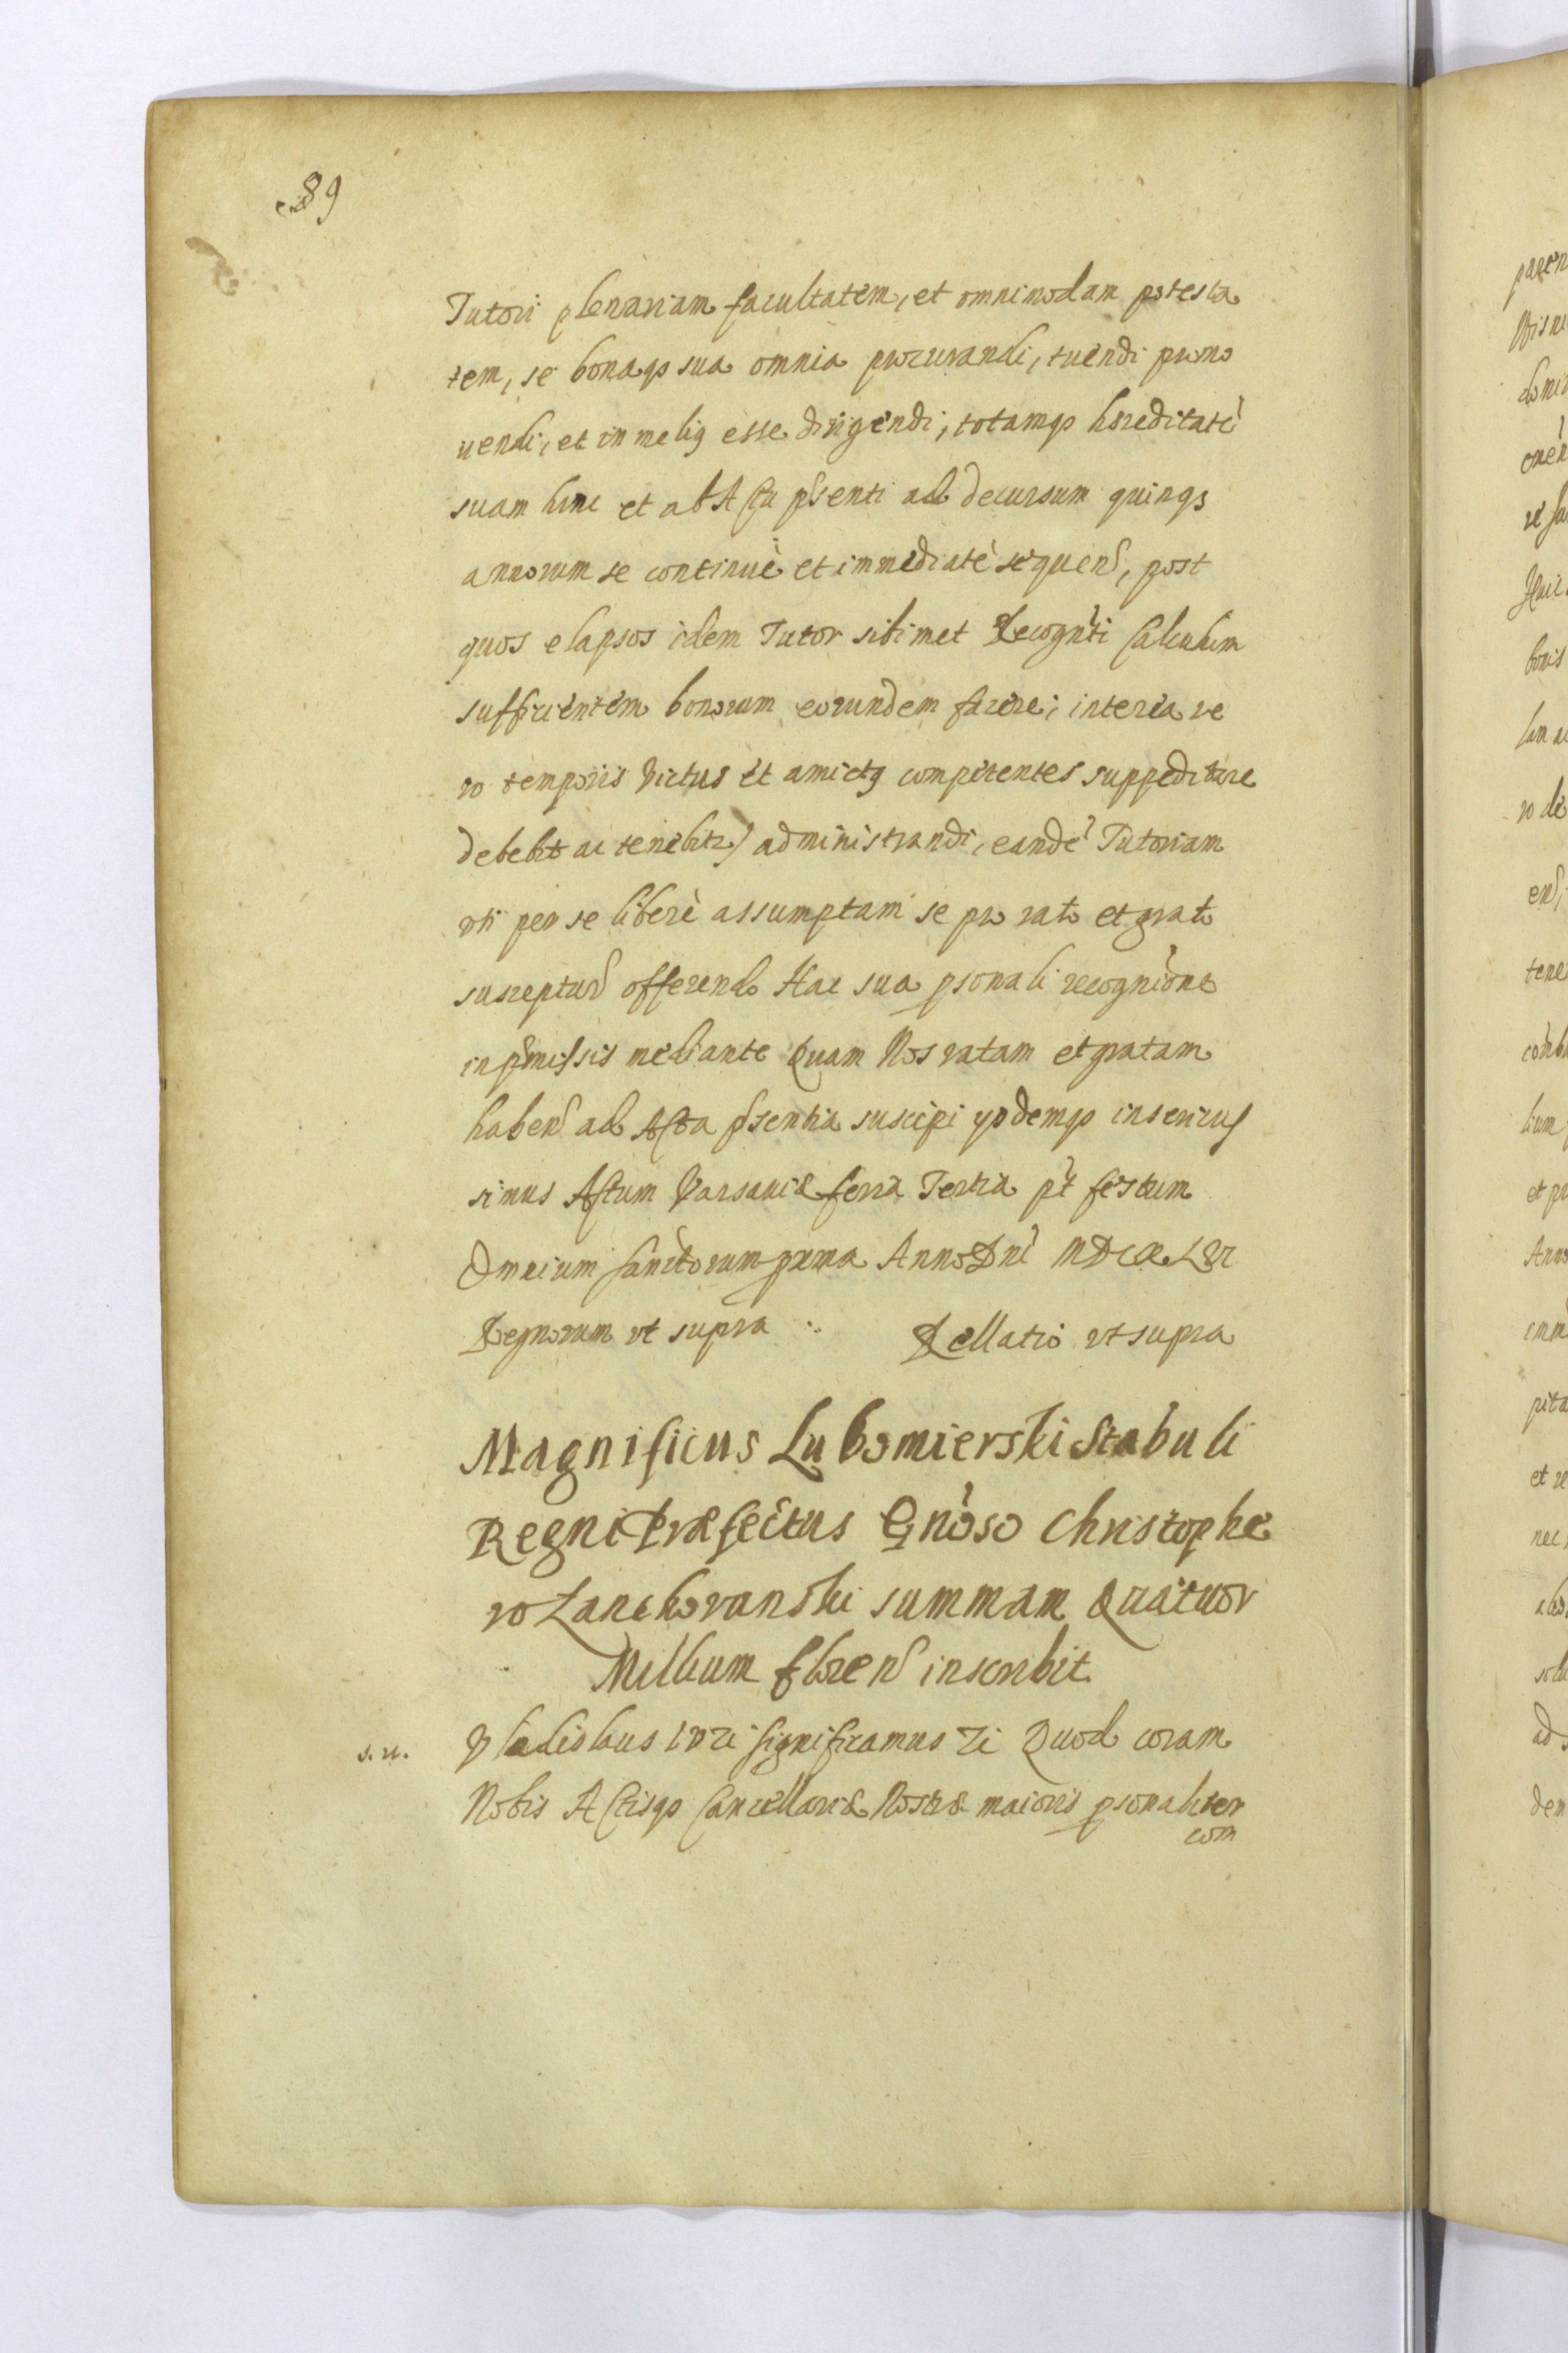 89
Tutori plenariam facultatem, et omnimodam potesta
tem, se bonaqз sua omnia procurandi, tuendi promo
uendi, et in meliꝯ esse dirigendi, totamqз hæreditatẽ
suam hinc et ab Actu pñsenti ad decursum quinqз
annorum se continuè et immediatè sequen̄, post
quos elapsos idem Tutor sibimet Recognti Calculum
sufficientem bonorum eorundem facere, interea ve
ro temporis victus et amictꝯ competentes suppeditare
debebit ac tenebitr) administrandi, eandẽ Tutoriam
vti per se liberè assumptam se pro rato et grato
suscepturũ offerendo Hac sua psonali recognitione
in præmissis mediante Quam Nos ratam et gratam
haben̄ ad Acta pñsentia suscipi ysdemqз inseri ius
simus Actum Varsauiæ feria Tertia pt festum
Omnium Sanctorum prima Anno Dni
Regnorum vt supra Rellatio vt supra
Magnificus Lubomierski Stabuli
Regni Præfectus Gnoso Christopho
ro Lanckoranski summam Quatuor
Millium floren̄ inscribit
s. n. Vladislaus IV &c Significamus &c Quod coram
Nobis Actisqз Cancellariæ Nostræ maioris psonaliter
com